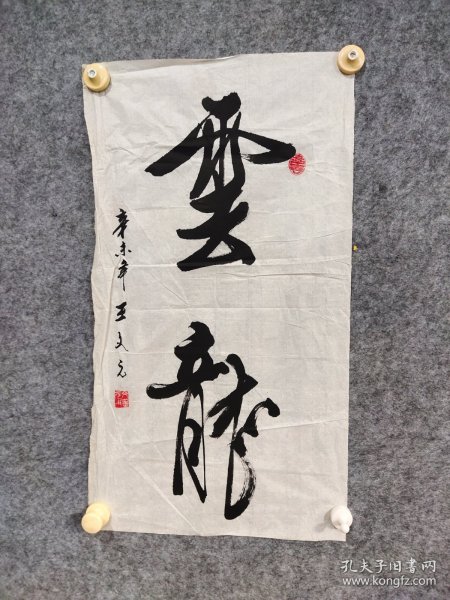 雲龍
辛未年 王文元
孔夫子旧书网
www.kongfz.com